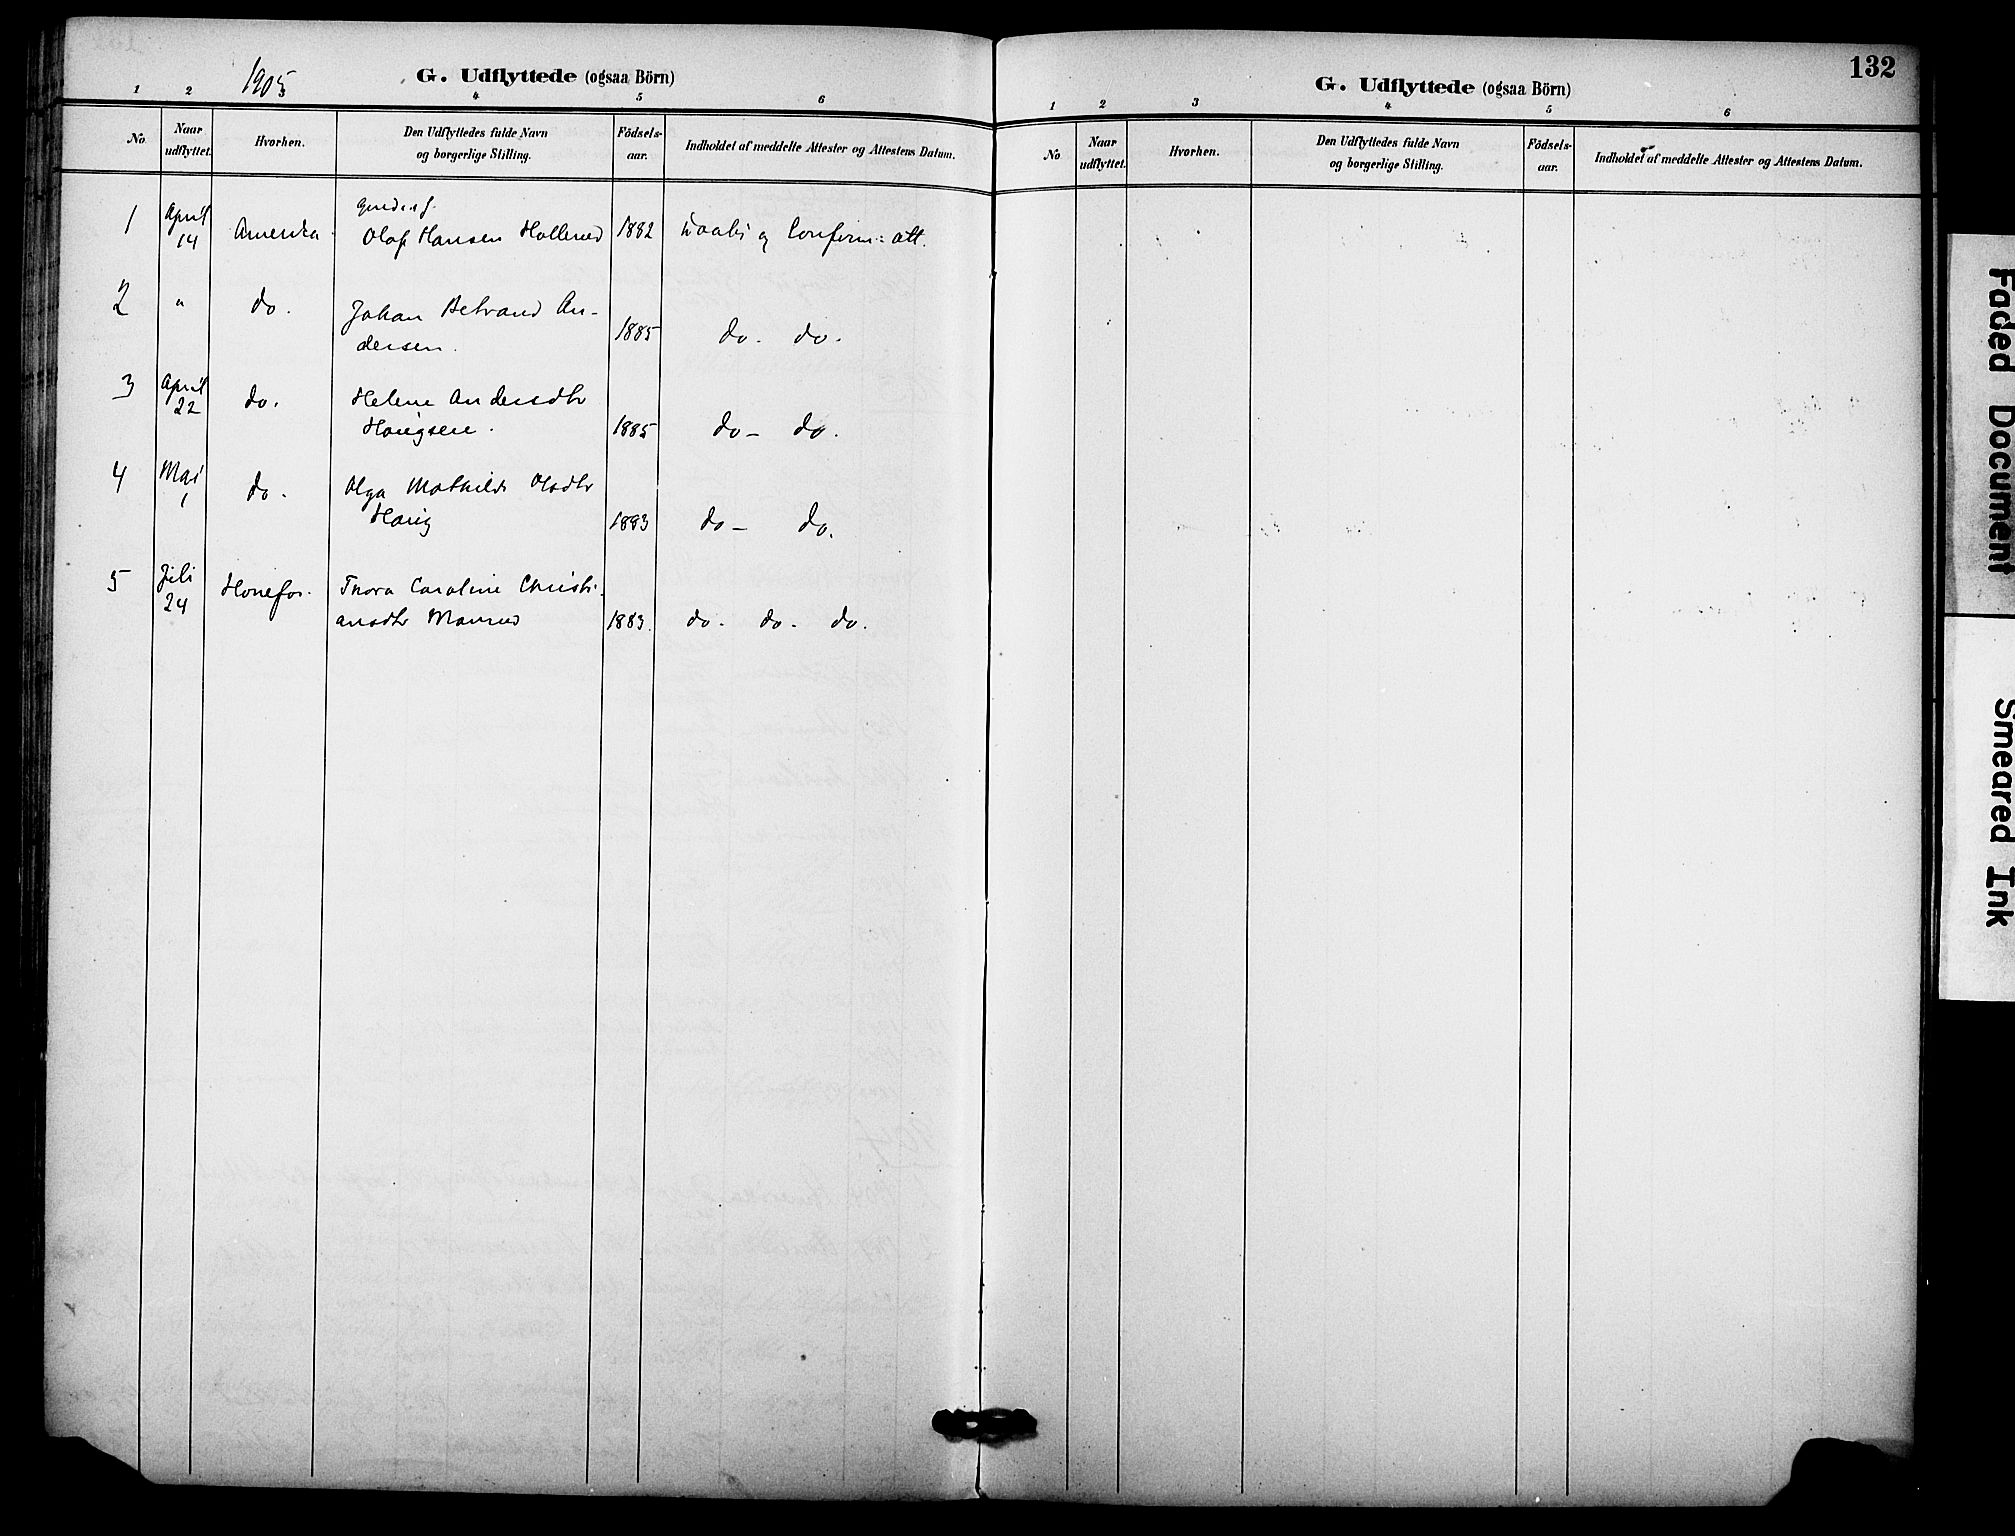 1905
G. Udflyttede (ogsaa Börn)
1 2 4 5 6
No Naar udflyttet. Hvorhen. Den Udflyttedes fulde Navn og borgerlige Stilling. Födsels-aar. Indholdet af meddelte Attester og Attestens Datum.
1 April 14 Amerika Olaf Hansen Hollerud 1882 Daabs og Confirm: att.
2 " do. Johan Betrand An-
dersen. 1885 do. do.
3 April 22 do. Helene Andersdtr
Haugsen. 1885 do - do.
4 Mai 1 do. Olga Mathilde Olsdtr
Haug 1883 do - do.
5 Juli 24 Hönefos. Thora Caroline Christi-
ansdtr 1883. do. do. do.
132
G. Udflyttede (ogsaa Börn)
1 2 3 4 5 6
No Naar udflyttet. Hvorhen. Den Udflyttedes fulde Navn og borgerlige Stilling. Födsels-aar. Indholdet af meddelte Attester og Attestens Datum.
Faded Document
Smeared Ink